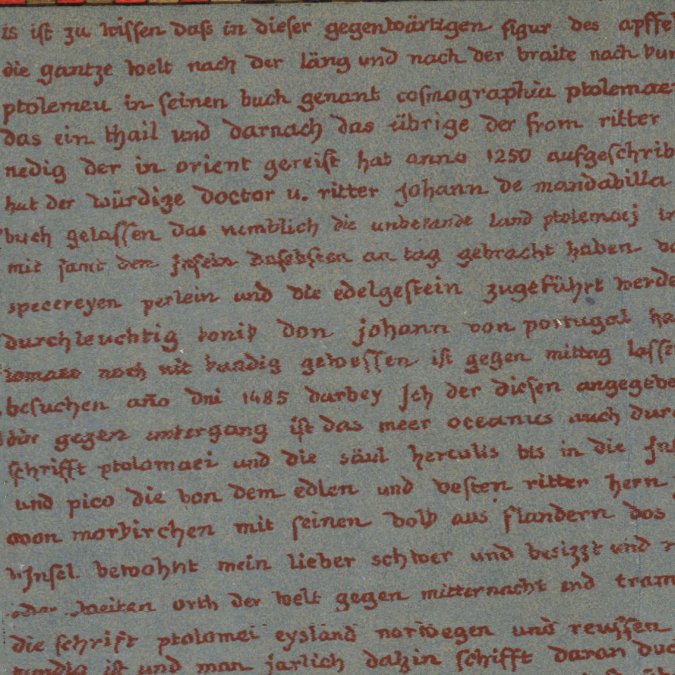 is ist zu wissen dass in dieser gegenwärtigen figur des apffel
die gantze welt nach der läng und nach der braite nach kun
ptolemeu in seinen buch genant cosmographia ptolemaei
das ein thail und darnach das übrige der from ritter
nedig der in orient gereist hat anno 1250 aufgeschrib
hat der würdige doctor u. ritter johann de mandabilla
buch gelassen das nemblich die unbekande land ptolemaej in
mit samt den Inseln daselbsten an tag gebracht haben
specereyen perlein und die edelgestein zugeführt werde
durchleuchtig konik don johann von portugal ha
tomaeo noch nit kundig gewessen ist gegen mittag lasse
besuchen año dni 1485 darbey Ich der diesen angegebe
für gegen untergang ist das meer oceanus auch dur
schrifft ptolomaei und die säul herculis bis in die Ins
und pico die von dem edlen und vesten ritter hern
von morkirchen mit seinen volk aus flandern dos
Insel bewohnt mein lieber schwer und besizzt und
weiten orth der welt gegen mitternacht und tram
die schrift ptolomei eysland norwegen und reussen
kundig ist und man jarlich dahin schifft daran